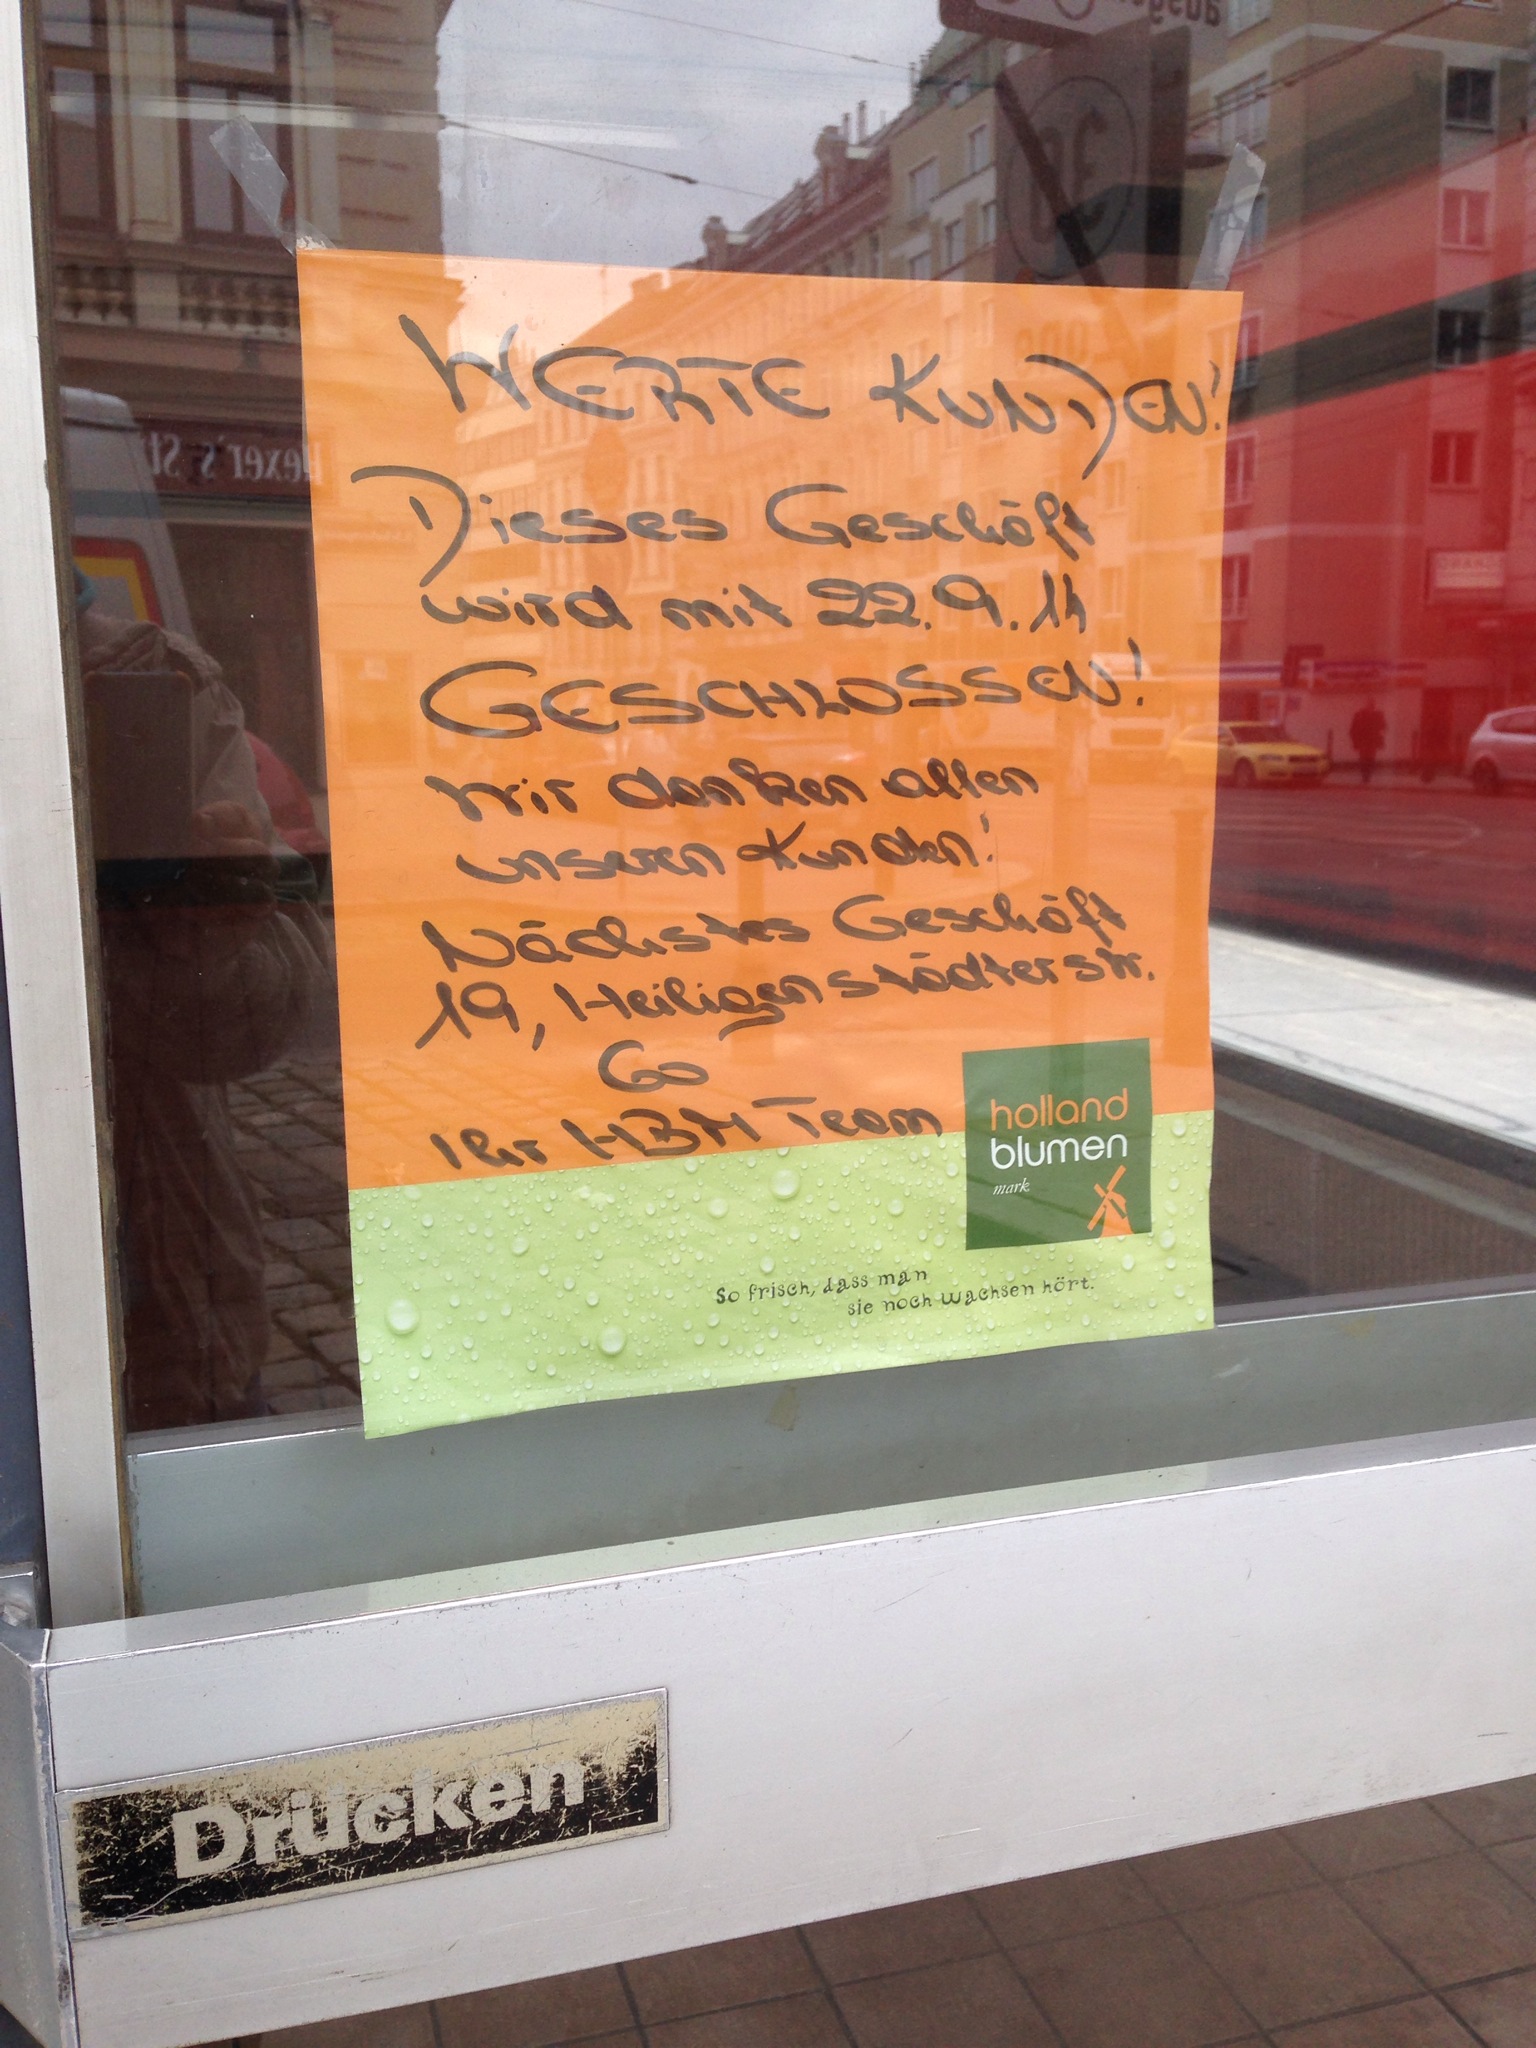 WERTE KUNDEN!
Dieses Geschäft
wird mit 22.9.14
GESCHLOSSEN!
Wir danken allen
unseren Kunden!
Nächstes Geschäft
19, Heiligenstädterstr.
60
Ihr HBM Team
holland
blumen
mark
So frisch, dass man
sie noch wachsen hört.
Drücken